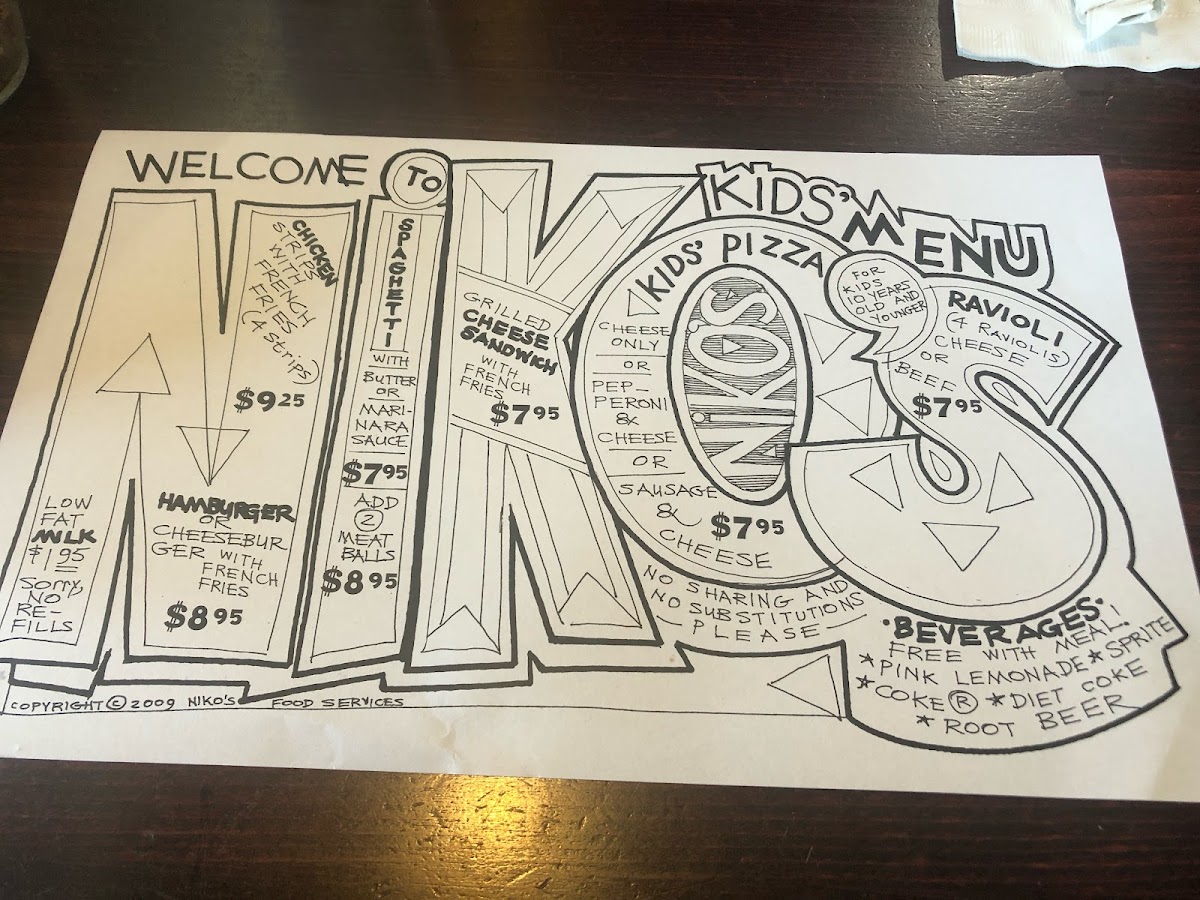 WELCOME TO
KIDS' MENU
LOW
FAT
MILK
$1.95
SORRY,
NO
RE-
FILLS
CHICKEN
STRIPS
WITH
FRENCH
FRIES
(4 Strips)
$9.25
HAMBURGER
OR
CHEESEBUR
GER WITH
FRENCH
FRIES
$8.95
SPAGHETTI
WITH
BUTTER
OR
MARI-
NARA
SAUCE
$7.95
ADD
2
MEAT
BALLS
$8.95
GRILLED
CHEESE
SANDWICH
WITH
FRENCH
FRIES
$7.95
KIDS' PIZZA
CHEESE
ONLY
OR
PEP-
PERONI
&
CHEESE
OR
SAUSAGE
&
CHEESE
$7.95
NIKO'S
FOR
KIDS
10 YEARS
OLD AND
YOUNGER
RAVIOLI
(4 RAVIOLIS)
CHEESE
OR
BEEF
$7.95
NO SHARING AND
NO SUBSTITUTIONS
- PLEASE -
•BEVERAGES•
FREE WITH MEAL!
★PINK LEMONADE ★SPRITE
★COKE® ★DIET COKE
★ROOT BEER
COPYRIGHT © 2009 NIKO'S FOOD SERVICES